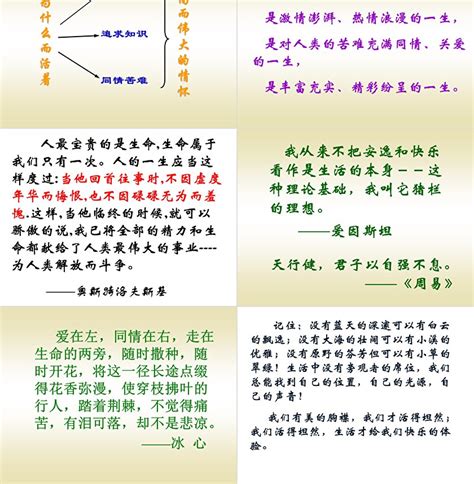 为什么而活着
追求知识
同情苦难
而伟大的情怀
是激情澎湃、热情浪漫的一生，
是对人类的苦难充满同情、关爱
的一生，
是丰富充实、精彩纷呈的一生。
人最宝贵的是生命,生命属于
我们只有一次。人的一生应当这
样度过:当他回首往事时,不因虚度
年华而悔恨,也不因碌碌无为而羞
愧.这样,当他临终的时候,就可以
骄傲的说,我已将全部的精力和生
命都献给了人类最伟大的事业----
为人类解放而斗争。
——奥斯特洛夫斯基
我从来不把安逸和快乐
看作是生活的本身－－这
种理论基础，我叫它猪栏
的理想。
——爱因斯坦
天行健，君子以自强不息。
——《周易》
爱在左，同情在右，走在
生命的两旁，随时撒种，随
时开花，将这一径长途点缀
得花香弥漫，使穿枝拂叶的
行人，踏着荆棘，不觉得痛
苦，有泪可落，却不是悲凉。
——冰 心
记住：没有蓝天的深邃可以有白云
的飘逸；没有大海的壮阔可以有小溪的
优雅；没有原野的芬芳但可以有小草的
翠绿！生活中没有旁观者的席位，我们
总能找到自己的位置，自己的光源，自
己的声音！
我们有美的胸襟，我们才活得坦然；
我们活得坦然，生活才给我们快乐的体
验。